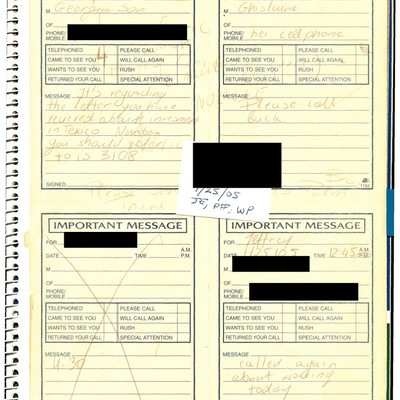 M
OF
PHONE/
MOBILE
TELEPHONED PLEASE CALL
CAME TO SEE YOU 4 WILL CALL AGAIN
WANTS TO SEE YOU RUSH
RETURNED YOUR CALL SPECIAL ATTENTION
MESSAGE It's regarding
the letter you have
about
in Number
you should
to is 3108
SIGNED
M Ghislaine
OF
PHONE/
MOBILE her cellphone
TELEPHONED PLEASE CALL
CAME TO SEE YOU WILL CALL AGAIN
WANTS TO SEE YOU RUSH
RETURNED YOUR CALL SPECIAL ATTENTION
MESSAGE
Please call
Back
1184
1/25/05
JE, PF, WP
IMPORTANT MESSAGE
FOR
DATE TIME A.M.
P.M.
M
OF
PHONE/
MOBILE
TELEPHONED PLEASE CALL
CAME TO SEE YOU WILL CALL AGAIN
WANTS TO SEE YOU RUSH
RETURNED YOUR CALL SPECIAL ATTENTION
MESSAGE
4.30
IMPORTANT MESSAGE
FOR Jeffrey
DATE 1/25/05 TIME 12:45 A.M.
P.M.
M
OF
PHONE/
MOBILE
TELEPHONED PLEASE CALL
CAME TO SEE YOU WILL CALL AGAIN
WANTS TO SEE YOU RUSH
RETURNED YOUR CALL SPECIAL ATTENTION
MESSAGE
called again
about
today